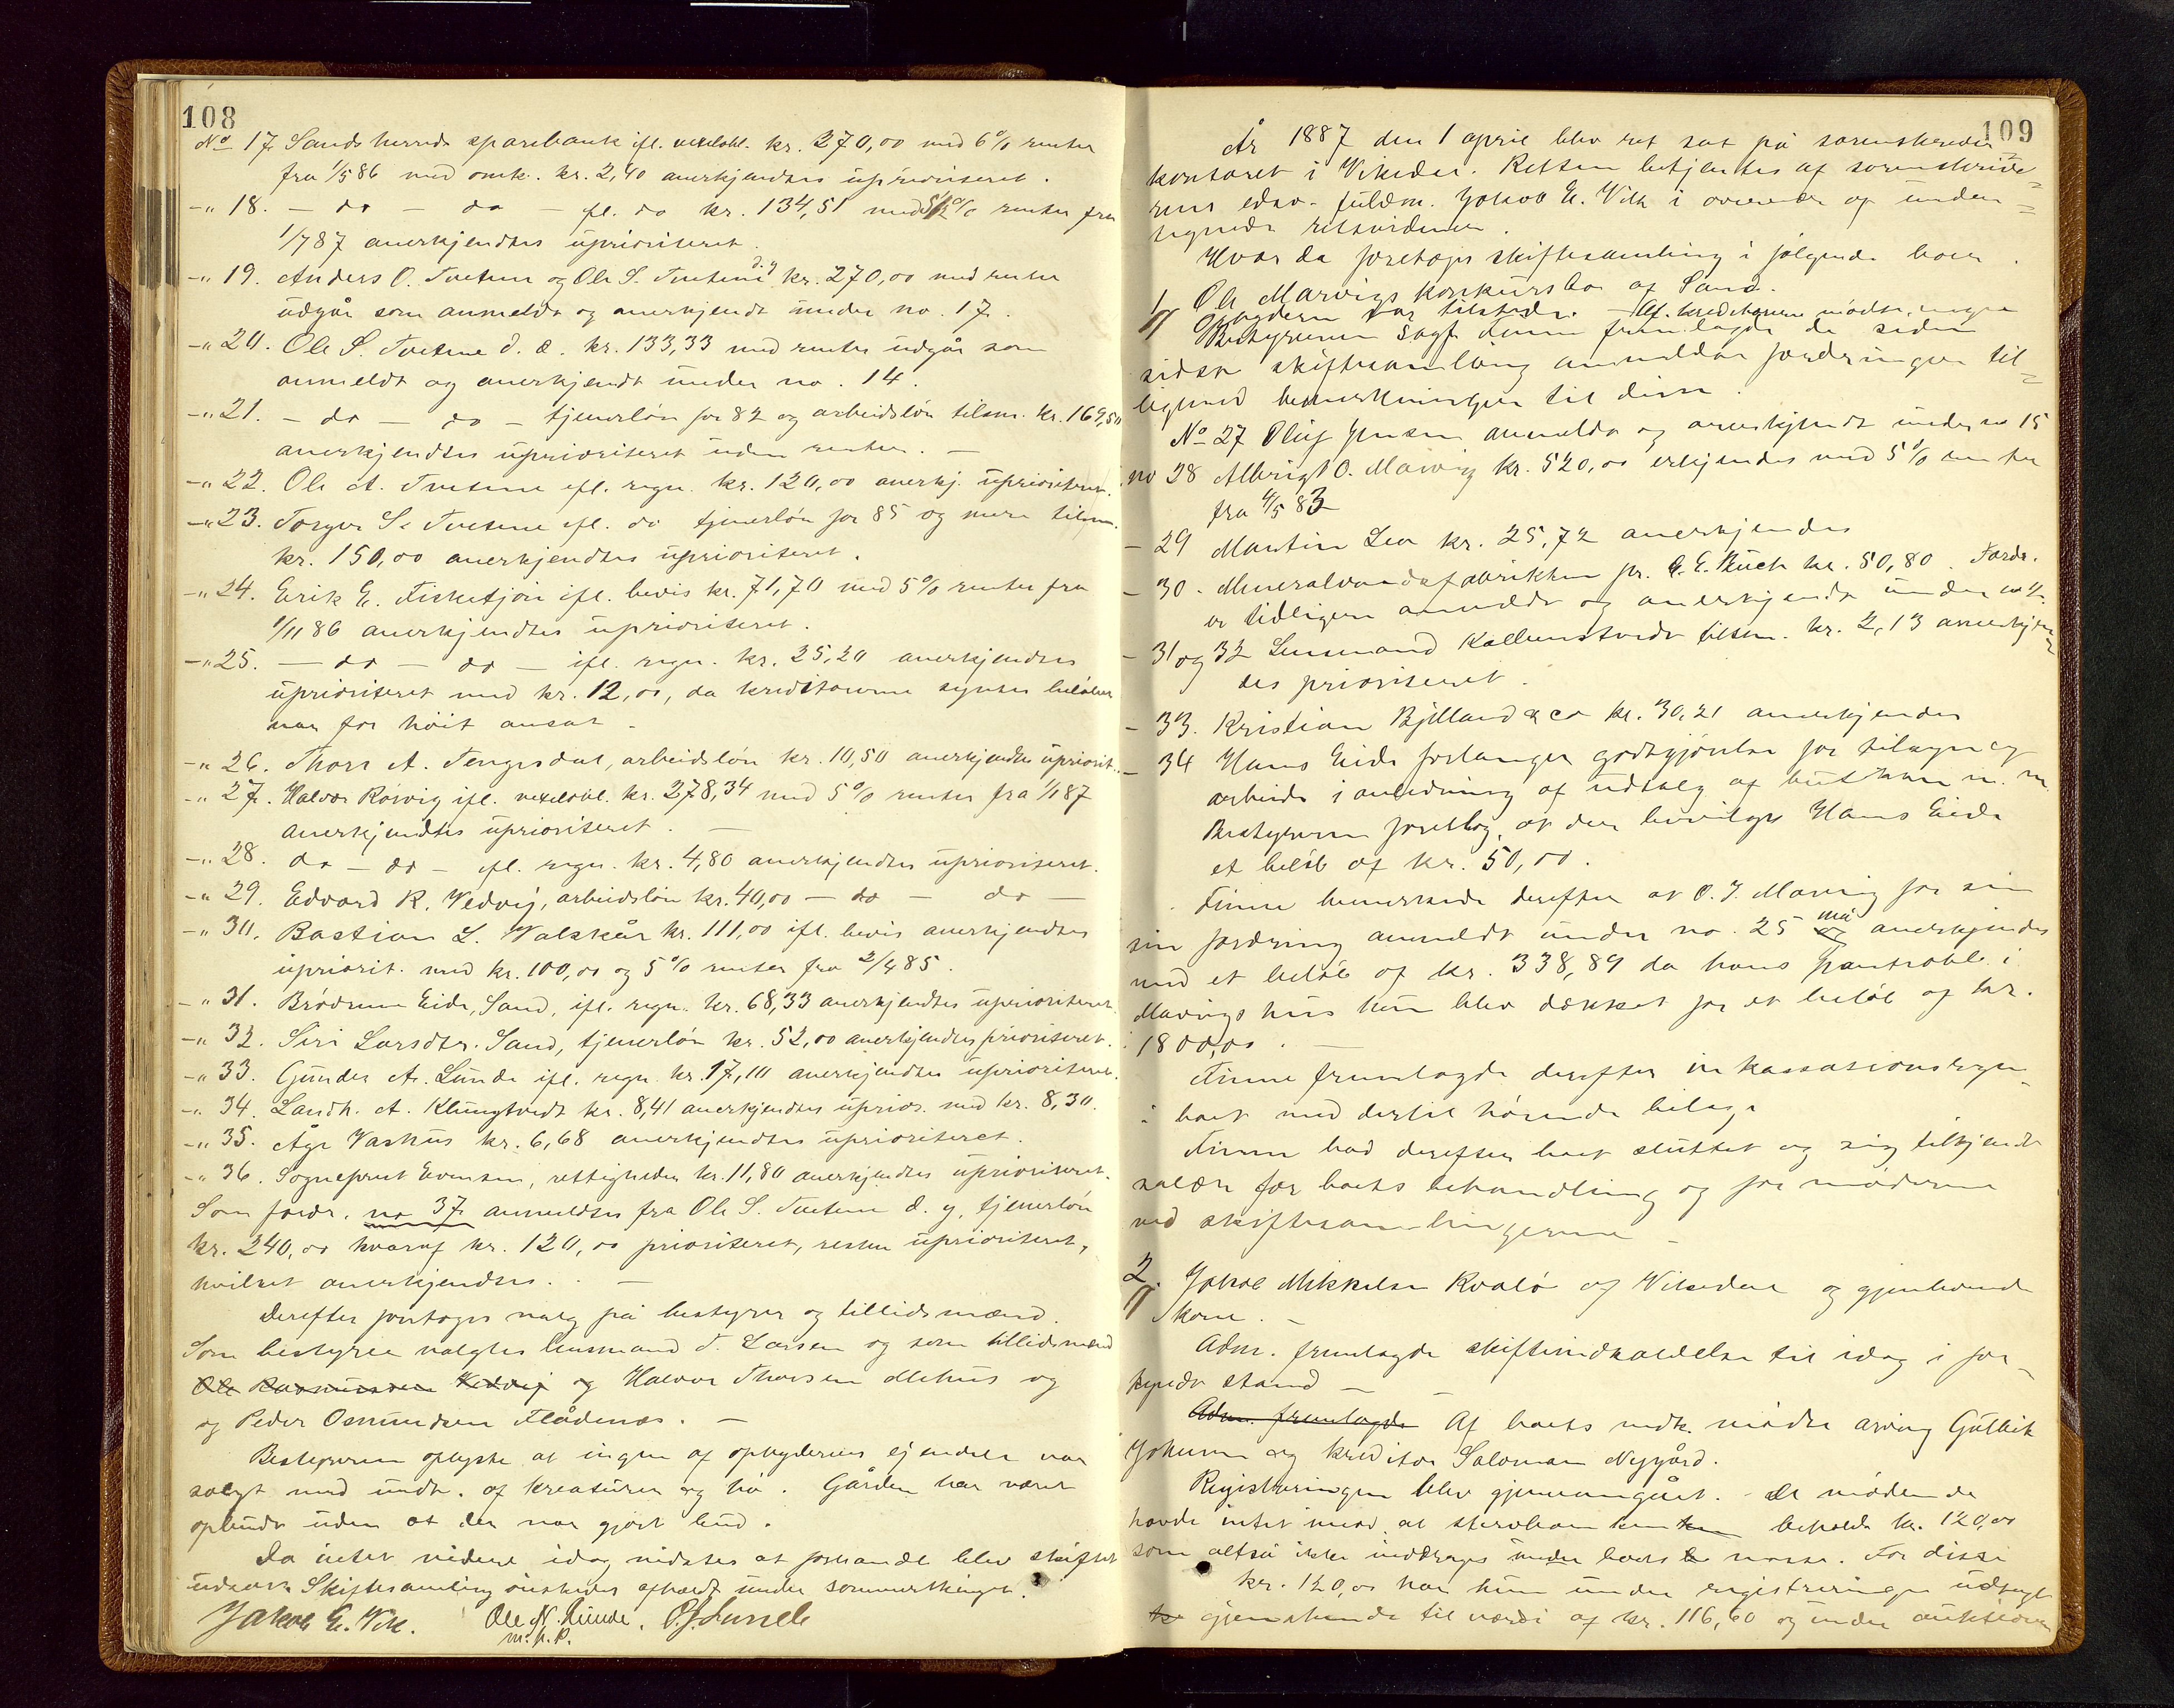 108
No 17. Sands herreds sparebank ifl. vexelobl. kr. 270,00 med 6% renter
fra 1/5 86 med omk. kr. 2,40 anerkjendtes uprioriteret.
-" 18. - do - do - ifl. do kr. 134,51 med 5½% renter fra
1/7 87 anerkjendtes uprioriteret.
-" 19. Anders O. Tvetene og Ole S. Tvetene d. y. kr. 270,00 med renter
udgår som anmeldt og anerkjendt under no. 17.
-" 20. Ole S. Tvetene d. æ. kr. 133,33 med renter udgår som
anmeldt og anerkjendt under no. 14.
-" 21. - do - do - tjenerløn for 82 og arbeidsløn tilsm. kr. 169,50
anerkjendtes uprioriteret uden renter. -
-" 22. Ole A. Tvetene ifl. regn. kr. 120,00 anerkj. uprioriteret.
-" 23. Torger S. Tvetene ifl. do tjenerløn for 85 og mere tilsm.
kr. 150,00 anerkjendtes uprioriteret.
-" 24. Erik E. Fisketjøn ifl. bevis kr. 71,70 med 5% renter fra
1/11 86 anerkjendtes uprioriteret.
-" 25. - do - do - ifl. regn. kr. 25,20 anerkjendtes
uprioriteret med kr. 12,00, da kreditorerne syntes beløbet
var for høit ansat -
-" 26. Thore A. Tengesdal, arbeidsløn kr. 10,50 anerkjendtes upriorit.
-" 27. Halvor Rørvig ifl. vexelobl. kr. 278,34 med 5% renter fra 1/1 87
anerkjendtes uprioriteret. -
-" 28. do - do - ifl. regn. kr. 4,80 anerkjendtes uprioriteret.
-" 29. Edvard R. Vedvig, arbeidsløn kr. 40,00 - do - do -
-" 30. Bastian L. Valskår kr. 111,00 ifl. bevis anerkjendtes
upriorit. med kr. 100,00 og 5% renter fra 2/4 85.
-" 31. Brødrene Eide, Sand, ifl. regn. kr. 68,33 anerkjendtes uprioriteret
-" 32. Siri Larsdtr. Sand, tjenerløn kr. 52,00 anerkjendtes prioriteret.
-" 33. Gunder A. Lunde ifl. regn. kr. 17,10 anerkjendtes uprioriteret.
-" 34. Landh. A. Klungtvedt kr. 8,41 anerkjendtes uprior. med kr. 8,30.
-" 35. Åge Vashus kr. 6,68 anerkjendtes uprioriteret.
-" 36. Sogneprest Evensen, rettigheder kr. 11,80 anerkjendtes uprioriteret.
Som fordr. no 37 anmeldtes fra Ole S. Tvetene d. y. tjenerløn
kr. 240,00 hvoraf kr. 120,00 prioriteret, resten uprioriteret,
hvilket anerkjendtes. -
Derefter foretoges valg på bestyrer og tillidsmænd.
Som bestyrer valgtes lensmand T. Larsen og som tillidsmænd
Ole Rasmussen Vedvig og Halvor Thorsen Mehus og
og Peder Osmundsen Flådenes. -
Bestyreren oplyste at ingen af opbyderens eiendele var
solgt med undt. af kreaturer og hø. Gården har været
opbudt uden at der var gjort bud.
Da intet videre idag vidstes at forhandle blev skiftet
udsatt. Skiftesamling ønskedes afholdt under sommerthinget.
Jakob E. Vik. Ole N. Lunde. O. J. Lunde
m. p. P.
109
År 1887 den 1 april blev ret sat på sorenskriver-
kontoret i Vikedal. Retten betjentes af sorenskrive-
rens edsv. fuldm. Jakob E. Vik i overvær af under-
tegnede retsvidner.
Hvor da foretoges skiftesamling i følgende boer.
1. Ole Marvigs konkursbo af Sand.
Opbyderen var tilstede. - Af kreditorerne mødte ingen
Bestyreren sagf. Finne fremlagde de siden
sidste skiftesamling anmeldte fordringer til-
ligemed bemerkninger til disse.
No 27 Oluf Jensen anmeldt og anerkjendt under no 15
no 28 Albrigt O. Marvig kr. 520,00 erkjendes med 5% renter
fra 4/5 83
- 29 Martin Lea kr. 25,72 anerkjendes
- 30. Mineralvandsfabrikken pr. C. E. Buch kr. 50,80. Fordr.
er tidligere anmeldt og anerkjendt under no 4.
- 31 og 32 Lensmand Kallumtvedt tilsm. kr. 2,13 anerkjen-
des prioriteret.
- 33. Kristian Bjelland & co kr. 30,21 anerkjendes
- 34 Hans Eide forlanger godtgjørelse for tilsyn og
arbeide i anledning af udsalg af butikken m. m.
Bestyreren foreslog, at der bevilges Hans Eide
et beløb af kr. 50,00.
Finne bemerkede derefter at O. J. Marvig for sin
sin fordring anmeldt under no. 25 må anerkjendes
med et beløb af kr. 338,89 da hans pantobl. i
Marvigs hus kun blev dækket for et beløb af kr.
1800,00. -
Finne fremlagde derefter inkassationsregn.
i boet med dertil hørende bilage
Finne bad derefter boet sluttet og sig tilkjendt
salær for boets behandling og for møderne
ved skiftesamlingerne -
2. Jakob Mikkelsen Kvalø af Vikedal og gjenlevende
kone. -
Adm. fremlagde skifteindkaldelse til idag i for-
kyndt stand -
Adm. fremlagde Af boets vedk. mødte arving Gutlik
Johnsen og kreditor Saloman Nygård.
Registreringen blev gjennemgået. - De mødende
havde intet imod at stervboenken beholdt kr. 120,00
som altså ikke inddrages under boets masse. For disse
kr. 120,00 har hun under registreringen udtaget
gjenstande til værdi af kr. 116,60 og under auktionen